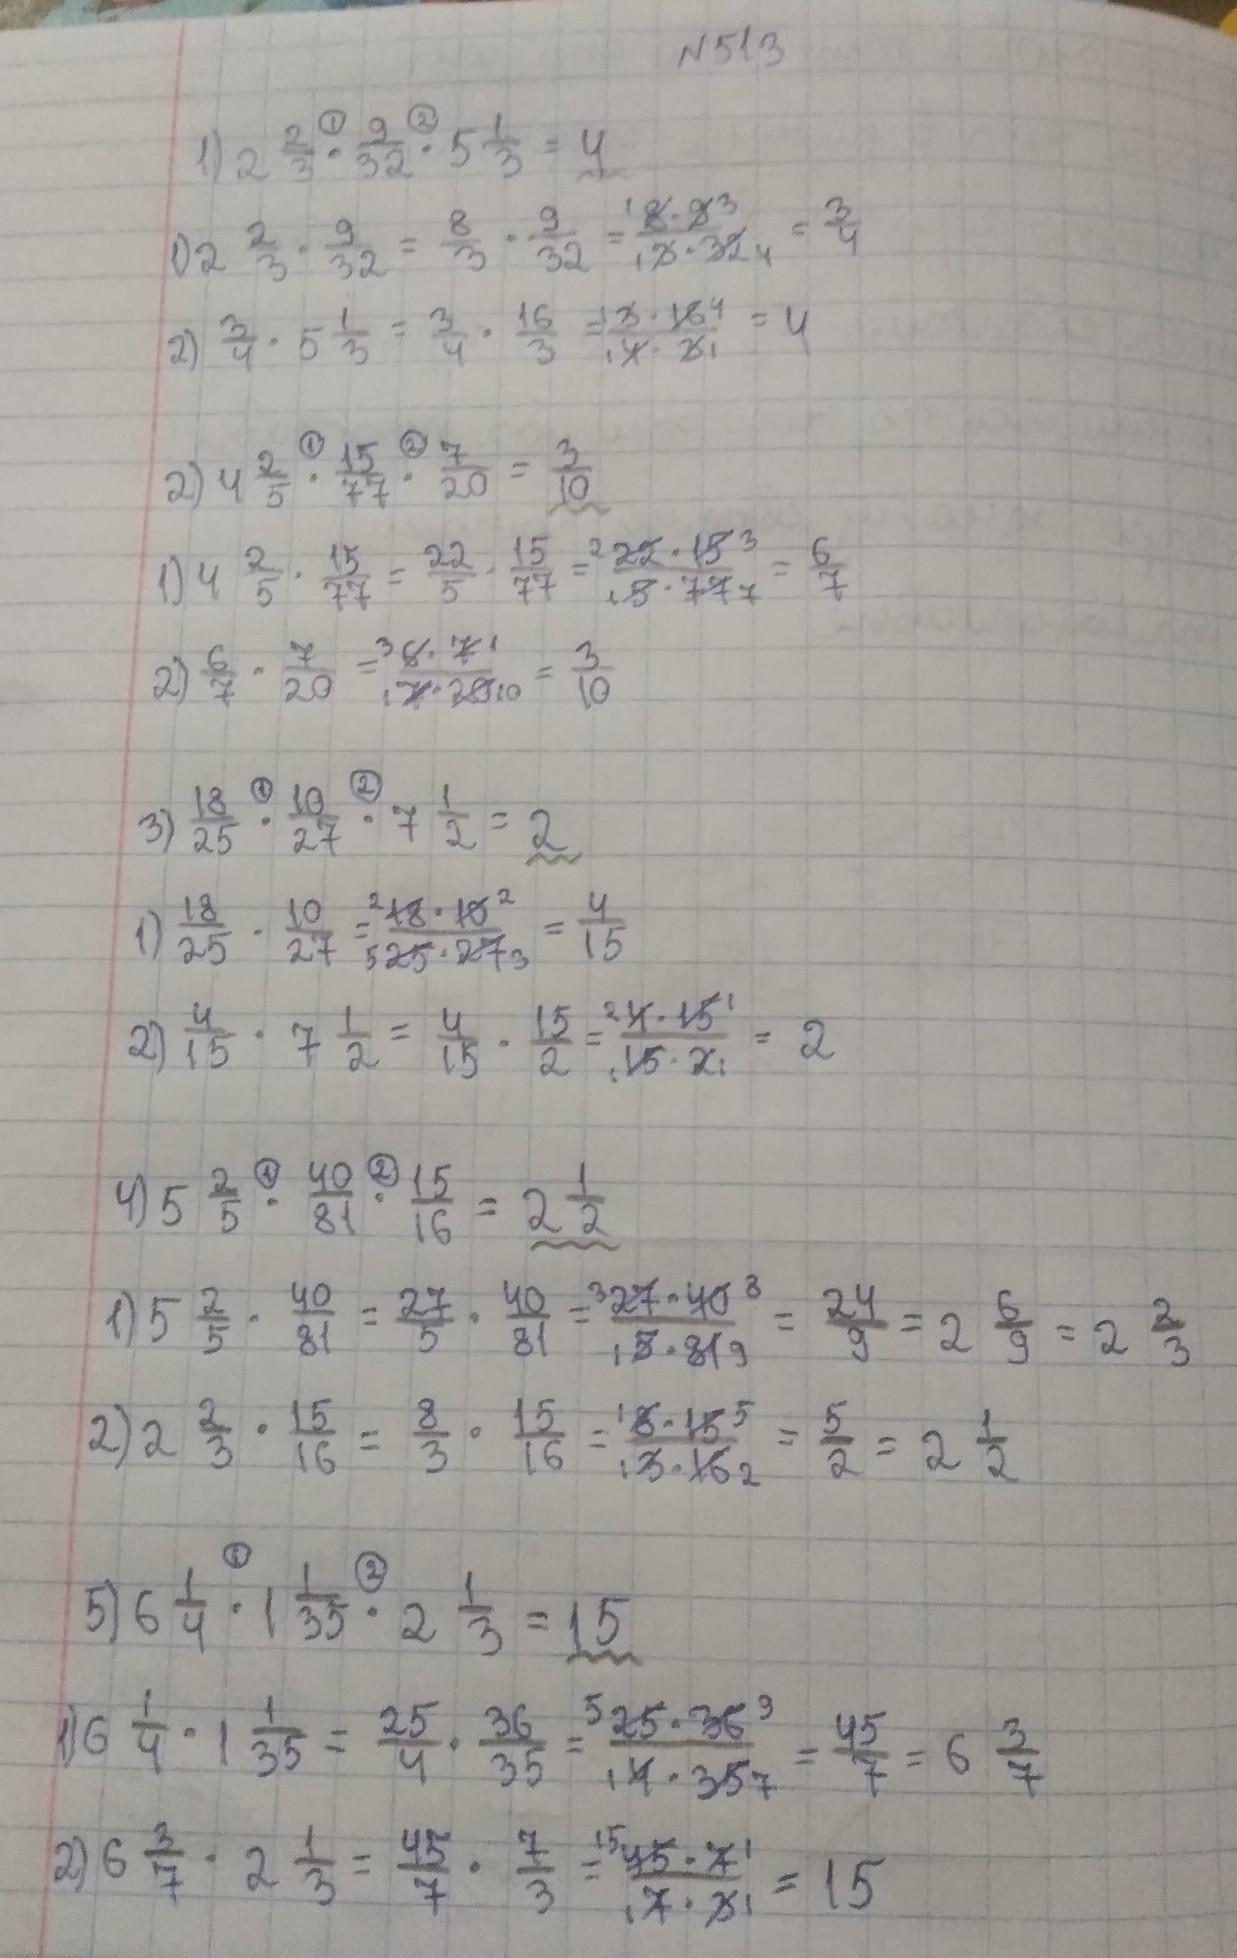 N513
1) 2 2/3 ① · 9/32 ② · 5 1/3 = 4
1) 2 2/3 · 9/32 = 8/3 · 9/32 = ¹8·9³/₁3·32₄ = 3/4
2) 3/4 · 5 1/3 = 3/4 · 16/3 = ¹3·16⁴/₁4·3₁ = 4
2) 4 2/5 ① · 15/77 ② · 7/20 = 3/10
1) 4 2/5 · 15/77 = 22/5 · 15/77 = ²22·15³/₁5·77₇ = 6/7
2) 6/7 · 7/20 = ³6·7¹/₁7·20₁₀ = 3/10
3) 18/25 ① · 10/27 ② · 7 1/2 = 2
1) 18/25 · 10/27 = ²18·10²/₅25·27₃ = 4/15
2) 4/15 · 7 1/2 = 4/15 · 15/2 = ²4·15¹/₁15·2₁ = 2
4) 5 2/5 ① · 40/81 ② · 15/16 = 2 1/2
1) 5 2/5 · 40/81 = 27/5 · 40/81 = ³27·40⁸/₁5·81₉ = 24/9 = 2 6/9 = 2 2/3
2) 2 2/3 · 15/16 = 8/3 · 15/16 = ¹8·15⁵/₁3·16₂ = 5/2 = 2 1/2
5) 6 1/4 ① · 1 1/35 ② · 2 1/3 = 15
1) 6 1/4 · 1 1/35 = 25/4 · 36/35 = ⁵25·36⁹/₁4·35₇ = 45/7 = 6 3/7
2) 6 3/7 · 2 1/3 = 45/7 · 7/3 = ¹⁵45·7¹/₁7·3₁ = 15